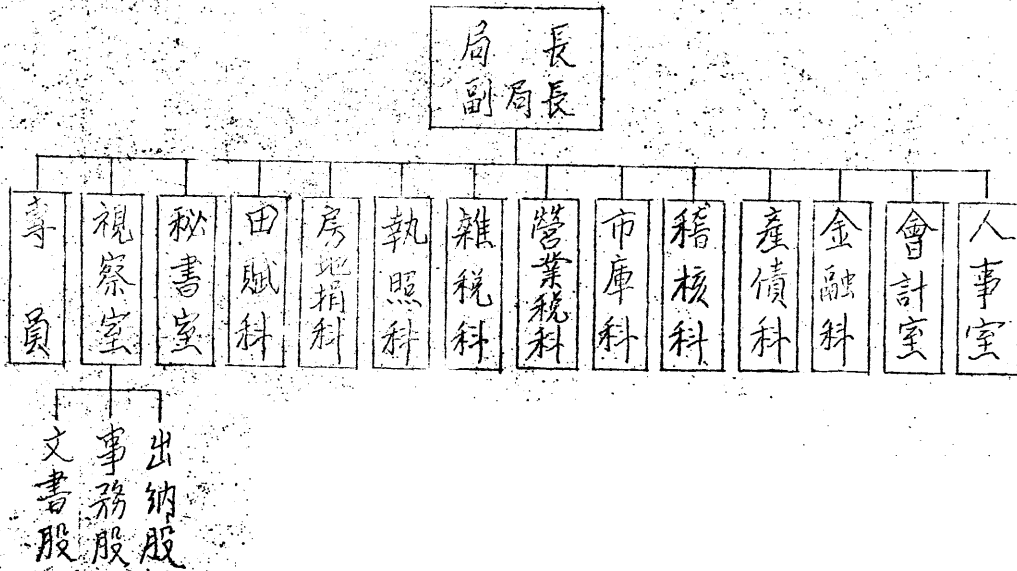 局長
副局長
專員
視察室
秘書室
田賦科
房地捐科
執照科
雜稅科
營業稅科
市庫科
稽核科
產債科
金融科
會計室
人事室
文書股
事務股
出納股